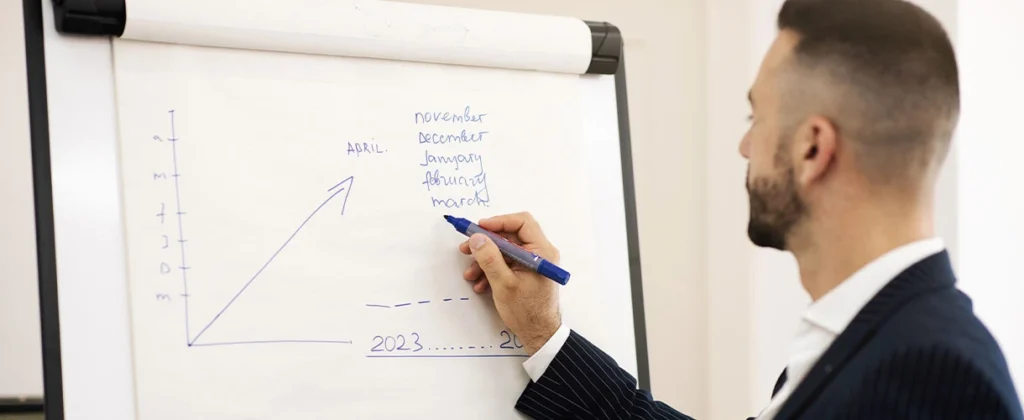 november
December
January
february
march.
APRIL.
a
m
f
J
D
2023........20